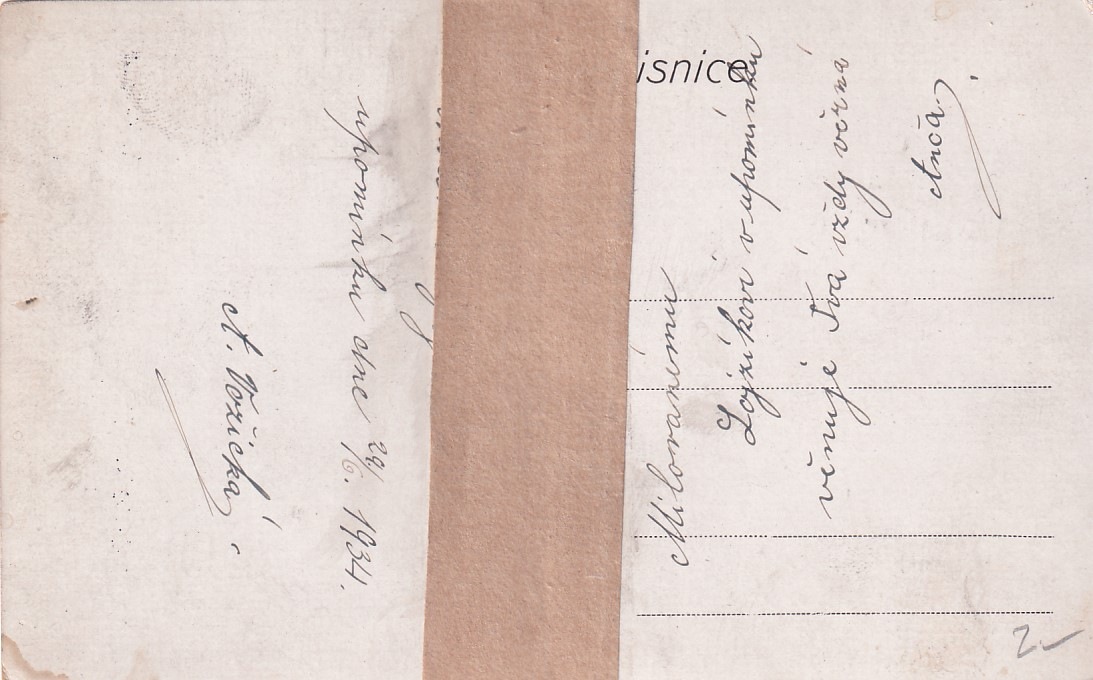 isnice
Milovanému
Lojzíkovi v upomínku
věnuje Tvá vždy věrná
Anča.
upomínku dne 29/6. 1934.
A. Vožická.
2